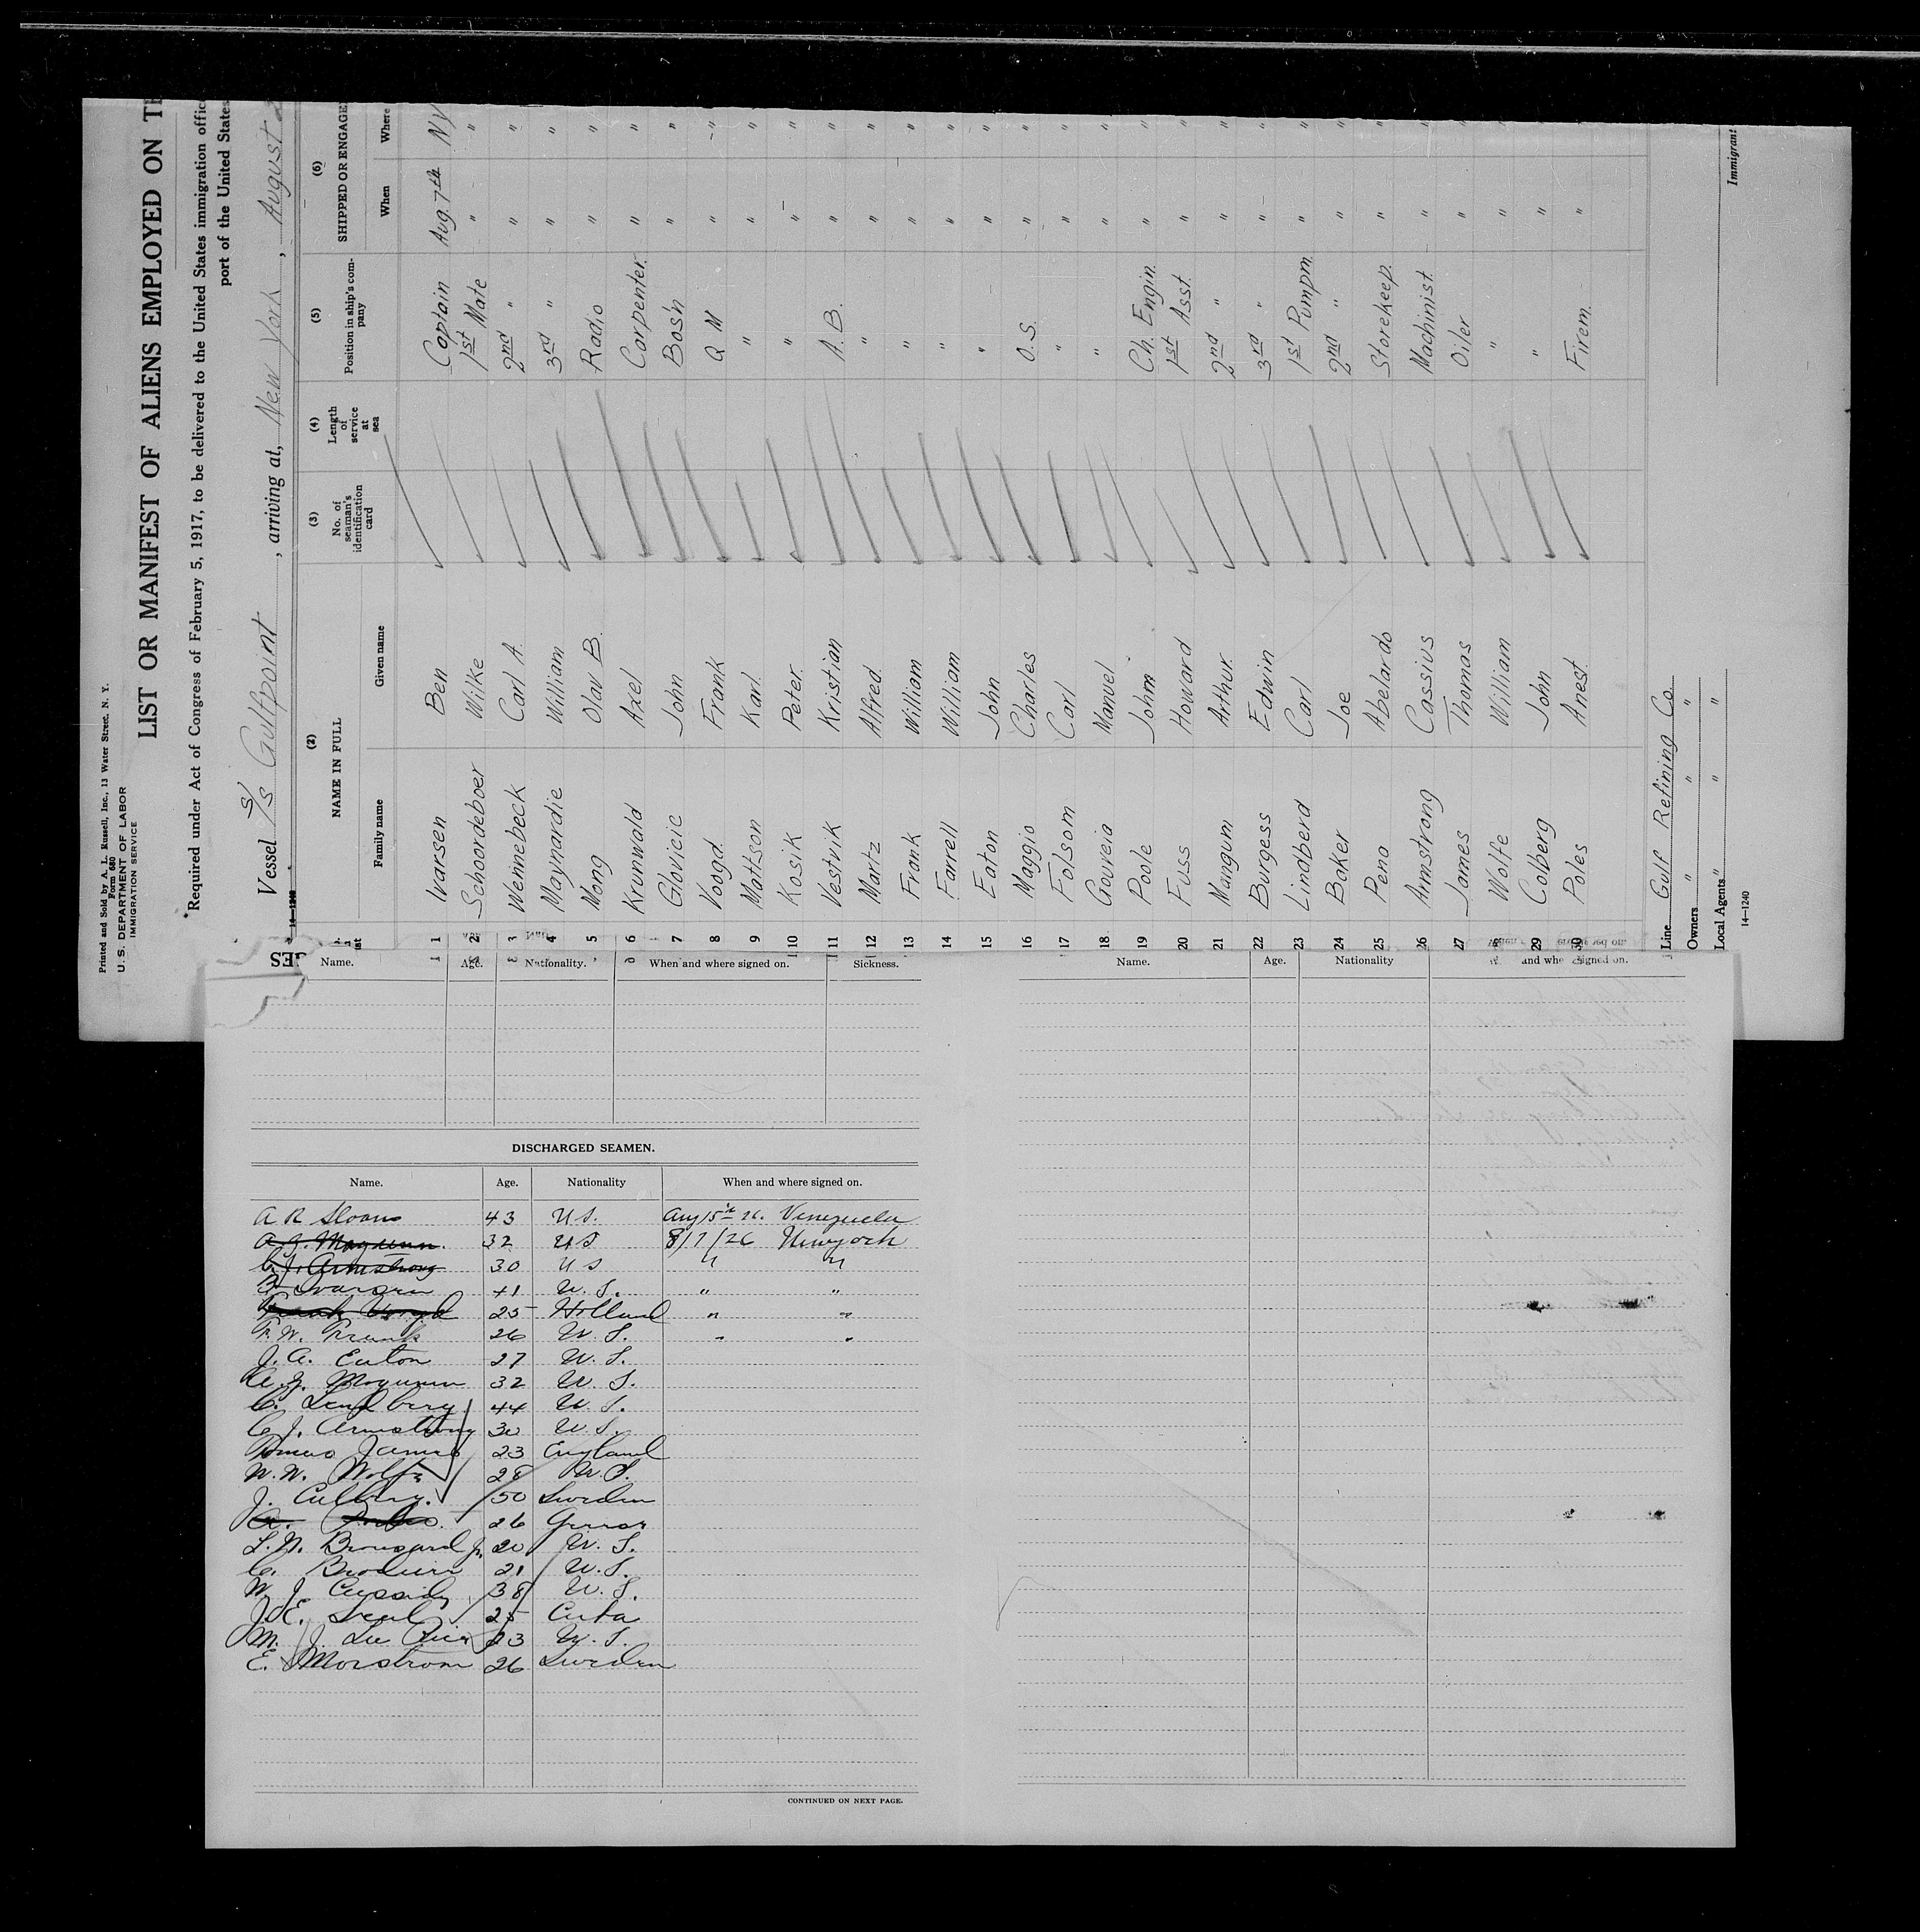 Printed and Sold by A. L. Russell, Inc., 13 Water Street, N. Y.
Form 680
U. S. DEPARTMENT OF LABOR
IMMIGRATION SERVICE
LIST OR MANIFEST OF ALIENS EMPLOYED ON
Required under Act of Congress of February 5, 1917, to be delivered to the United States immigration
port of the United States
Vessel S/S Gulfpoint, arriving at, New York, August
14—1240
(2) (3) (4) (5) (6)
NAME IN FULL No. of seaman's identification card Length of service at sea Position in ship's company SHIPPED OR ENGAGE
Family name Given name When Where
1 Ivarsen Ben Captain Aug. 7th NY
2 Schoordeboer Wilke 1st Mate " "
3 Wennebeck Carl A. 2nd " " "
4 Maynardie William 3rd " " "
5 Mong Olav B. Radio " "
6 Krunwald Axel Carpenter. " "
7 Glovicic John Bos'n " "
8 Voogd Frank Q M " "
9 Mattson Karl. " " "
10 Kosik Peter. " " "
11 Vestvik Kristian A. B. " "
12 Martz Alfred " " "
13 Frank William " " "
14 Farrell William " " "
15 Eaton John " " "
16 Maggio Charles O. S. " "
17 Folsom Carl " " "
18 Gouveia Manuel " " "
19 Poole John Ch. Engin. " "
20 Fuss Howard 1st Asst. " "
21 Mangum Arthur 2nd " " "
22 Burgess Edwin 3rd " " "
23 Lindberd Carl 1st Pumpm. " "
24 Baker Joe 2nd " " "
25 Pena Abelardo Storekeep. " "
26 Armstrong Cassius Machinist " "
27 James Thomas Oiler " "
28 Wolfe William " " "
29 Colberg John " " "
30 Poles Anest Firem. " "
Line Gulf Refining Co.
Owners " " "
Local Agents " " "
14—1240
Immigrant
Name. Age. Nationality. When and where signed on. Sickness.
Name. Age. Nationality and whe signed on.
DISCHARGED SEAMEN.
Name. Age. Nationality When and where signed on.
A R Sloan 43 U S. Aug 15th 26. Venezuela
32 U S 8/7/26 New york
C. J. Armstrong 30 U S " "
B Ivarsen 41 U. S. " "
Frank Voogd 25 Holland " "
F. W. Frank 26 U. S. " "
J. A. Eaton 27 U. S.
A. J. Mogumm 32 U. S.
C. Lindberg 44 U. S.
C. J. Armstrong 30 U. S.
Tomas James 23 England
W. W. Wolfe 28 U. S.
J. Culberg. 50 Sweden
A. 26
L. N. Brousard Jr. 20 U. S.
C. 21 U. S.
W. J. Cassidy 38 U. S.
J. E. Leal 25 Cuba
M. J. Lee 23 U. S.
E. Morstrom 26 Sweden
CONTINUED ON NEXT PAGE.